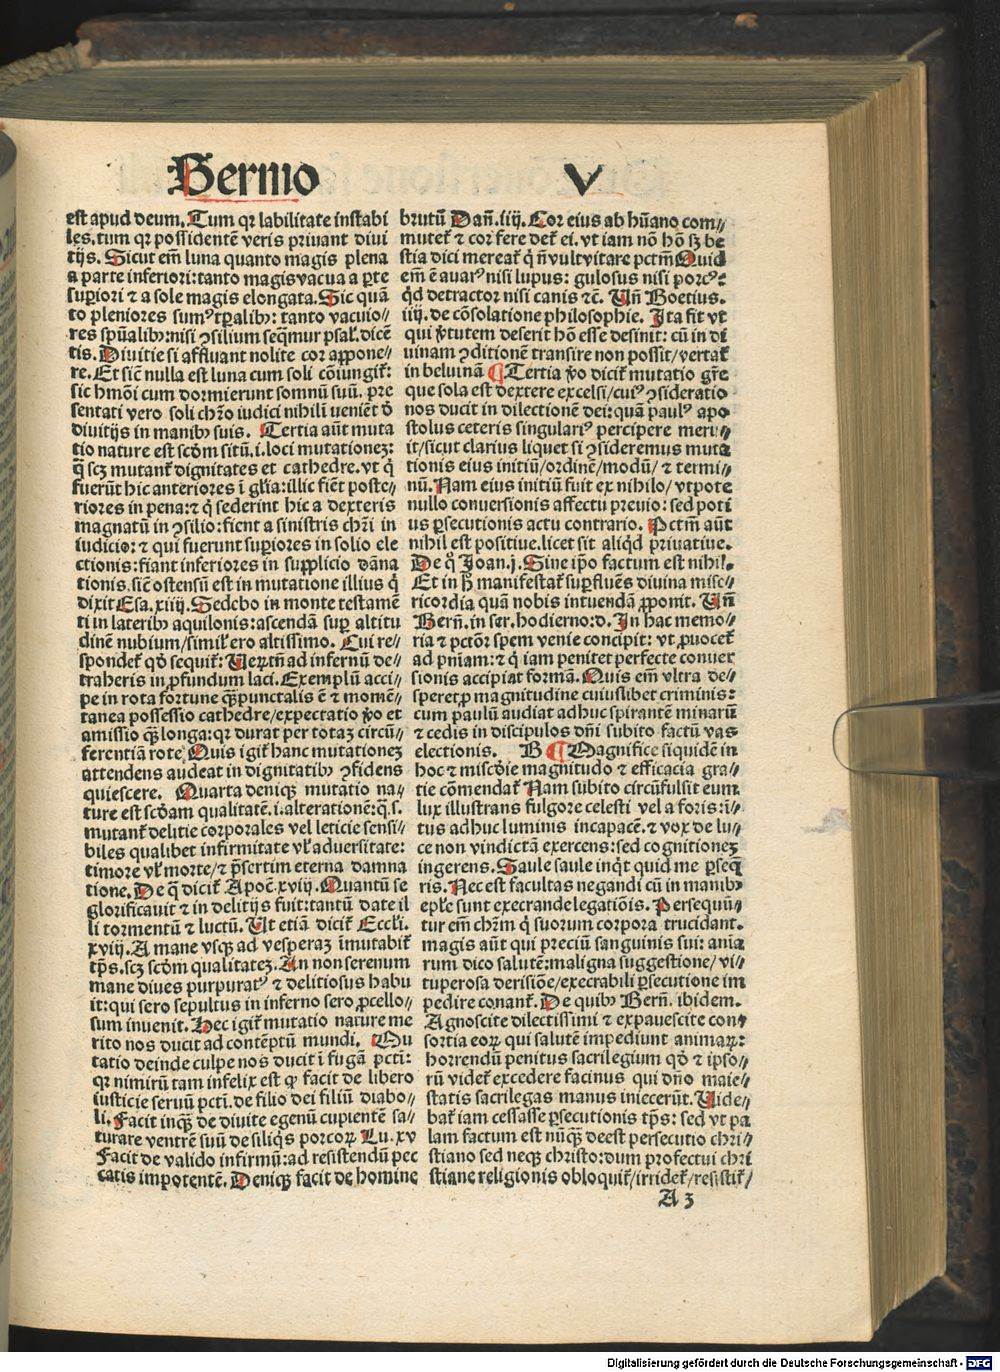 Sermo V
est apud deum. Tum qꝛ labilitate instabi
les. tum qꝛ possidentē veris priuant diui
tijs. Sicut em̄ luna quanto magis plena
a parte inferiori: tanto magis vacua a ꝑte
suꝑiori ⁊ a sole magis elongata. Sic quā
to pleniores sumꝰ tꝑalibꝫ: tanto vacuio⸗
res spūalibꝫ: nisi ꝯsilium seq̄mur psal. dicē
tis. Diuitie si affluant nolite cor aꝓpone⸗
re. Et sic̄ nulla est luna cum soli cōiungit̄:
sic hmōi cum dormierunt somnū suū. pre
sentati vero soli chr̄o iudici nihilū ueniēt ō
diuitijs in manibꝫ suis. Tertia aūt muta
tio nature est scd̄m sitū .i. loci mutationeꝫ:
q̄ scꝫ mutant̄ dignitates et cathedre. vt q̇
fuerūt hic anteriores ī gl̄ia: illic fiēt poste⸗
riores in pena: ⁊ q̇ sederint hic a dexteris
magnatū in ꝯsilio: fient a sinistris chr̄i in
iudicio: ⁊ qui fuerunt suꝑiores in solio ele
ctionis: fiant inferiores in suꝓplicio dāna
tionis. sic̄ ostensū est in mutatione illius q̇
dixit Esa. xiiij. Sedebo in monte testamē
ti in lateribꝰ aquilonis: ascendā suꝑ altitu
dinē nubium/ similꝭ ero altissimo. Cui re⸗
spondet̄ qḋ sequit̄: Uerūtn̄ ad infernū de⸗
traheris in ꝓfundum laci. Exemplū acci⸗
pe in rota fortune qꝫ punctalis ē ⁊ momē⸗
tanea possessio cathedre/ expectatio ꝟo et
amissio qꝫ longa: qꝛ durat per totaꝫ circū⸗
ferentiā rote. Quis igit̄ hanc mutationeꝫ
attendens audeat in dignitatibꝫ ꝯfidens
quiescere. Quarta deniqꝫ mutatio na⸗
ture est scd̄am qualitatē .i. alterationē: q̄.s.
mutant̄ delitie corporales vel leticie sensi⸗
biles qualibet infirmitate vl̄ aduersitate:
timore vl̄ morte/ ⁊ p̄sertim eterna damna
tione. De q̄ dicit̄ Apoc̄. xviij. Quantū se
glorificauit ⁊ in delitijs fuit: tantū date il
li tormentū ⁊ luctū. Ult etiā dicit̄ Eccl̄i.
xviij. A mane vsqꝫ ad vesperaꝫ īmutabit̄
tp̄s. scꝫ scd̄m qualitateꝫ. An non serenum
mane diues purpuratꝰ ⁊ delitiosus habu
it: qui sero sepultus in inferno sero ꝓcello⸗
sum inuenit. Hec igit̄ mutatio nature me
rito nos ducit ad contēptū mundi. Mu
tatio deinde culpe nos ducit ī fugā pctī:
qꝛ nimirū tam infelix est ꝙ facit de libero
iusticie seruū pctī. de filio dei filiū diabo⸗
li. Facit inqꝫ de diuite egenū cupientē sa⸗
turare ventrē suū de siliq̇s porcoꝝ Lu. xv
Facit de valido infirmū: ad resistendū pec
catis impotentē. Deniqꝫ facit de homine
brutū Dan̄. iiij. Cor eius ab hūano com⸗
mutet̄ ⁊ cor fere det̄ ei. vt iam nō hō sꝫ be
stia dici mereat̄ q̇ n̄ vult vitare pctm̄ Quid
em̄ ē auarꝰ nisi lupus: gulosus nisi porcꝰ:
qḋ detractor nisi canis ⁊c̄. Un̄ Boetius.
iiij. de cōsolatione philosophie. Ita fit vt
qui ꝟtutem deserit hō esse desinit: cū in di
uinam ꝯditionē transire non possit/ vertat̄
in beluinā ¶ Tertia ꝟo dicit̄ mutatio gr̄e
que sola est dextere excelsi/ cuiꝰ ꝯsideratio
nos ducit in dilectionē dei: quā paulꝰ apo
stolus ceteris singulariꝰ percipere meru⸗
it/ sicut clarius liquet si ꝯsideremus muta
tionis eius initiū/ ordinē/ modū/ ⁊ termi⸗
nū. Nam eius initiū fuit ex nihilo/ vtpote
nullo conuersionis affectu preuio: sed poti
us ꝑsecutionis actu contrario. Pctm̄ aūt
nihil est positiue. licet sit aliq̇d priuatiue.
De q̊ Joan. j. Sine ip̄o factum est nihil.
Et in h̊ manifestat̄ suꝑfluēs diuina mise⸗
ricordia quā nobis intuendā ꝓponit. Un̄
Bern̄. in ser. hodierno: d. In hac memo⸗
ria ⁊ pctōr spem venie concipit: vt ꝓuocet̄
ad pn̄iam: ⁊ q̇ iam penitet perfecte conuer
sionis accipiat formā. Quis em̄ vltra de⸗
speret ꝓ magnitudine cuiuslibet criminis:
cum paulū audiat adhuc spirantē minarū
⁊ cedis in discipulos dn̄i subito factū vas
electionis. B ¶ Magnifice siquidē in
hoc ⁊ miscd̄ie magnitudo ⁊ efficacia gra⸗
tie cōmendat̄ Nam subito circūfulsit eum
lux illustrans fulgore celesti vel a foris: ī⸗
tus adhuc luminis incapacē. ⁊ vox de lu⸗
ce non vindictā exercens: sed cognitioneꝫ
ingerens. Saule saule inq̇t quid me ꝑseq̄
ris. Nec est facultas negandi cū in manibꝫ
ep̄le sunt execrande legatiōis. Persequū⸗
tur em̄ chr̄m q̇ suorum corpora trucidant.
magis aūt qui preciū sanguinis sui: aīa
rum dico salutē: maligna suggestione/ vi⸗
tuperosa derisiōe/ execrabili ꝑsecutione im
pedire conant̄. De quibꝫ Bern̄. ibidem.
Agnoscite dilectissimi ⁊ expauescite con⸗
sortia eoꝝ qui salutē impediunt animaꝝ:
horrendū penitus sacrilegium qḋ ⁊ ipso⸗
rū videt̄ excedere facinus qui dn̄o maie⸗
statis sacrilegas manus iniecerūt. Uide⸗
bat̄ iam cessasse ꝑsecutionis tp̄s: sed vt pa
lam factum est nūqꝫ deest persecutio chri⸗
stiano sed neqꝫ christo: dum profectui chri
stiane religionis obloquit̄/ irridet̄/ resistit̄/
A 3
Digitalisierung gefördert durch die Deutsche Forschungsgemeinschaft - DFG